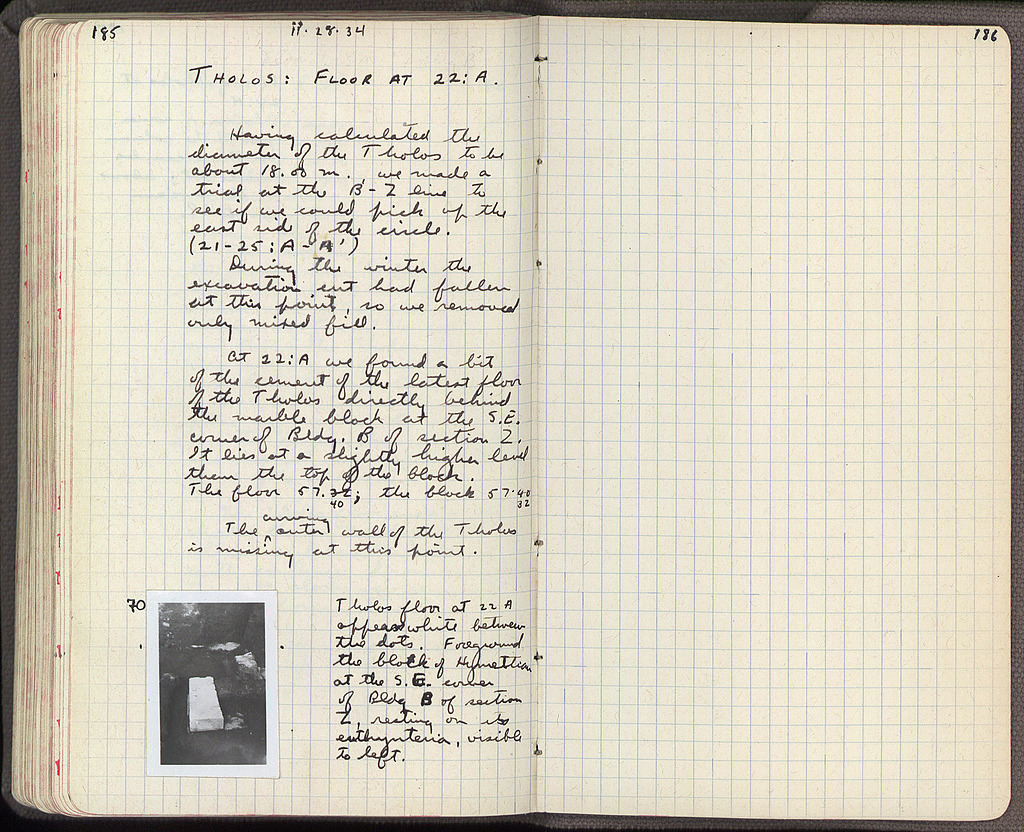 185
ii·28·34
186
THOLOS: FLOOR AT 22:A.
Having calculated the
diameter of the Tholos to be
about 18.00 m., we made a
trial at the B-Z line to
see if we could pick up the
east side of the circle.
(21-25:A-A')
During the winter the
excavation cut had fallen
at this point, so we removed
only mixed fill.
At 22:A we found a bit
of the cement of the latest floor
of the Tholos directly behind
the marble block at the S.E.
corner of Bldg. B of section Z.
It lies at a slightly higher level
than the top of the block.
The floor 57.32; the block 57.40
40 32
curving
The outer wall of the Tholos
is missing at this point.
70
Tholos floor at 22 A
appears white between
the dots. Foreground
the block of Hymettian
at the S.E. corner
of Bldg B of section
Z, resting on its
euthynteria, visible
to left.